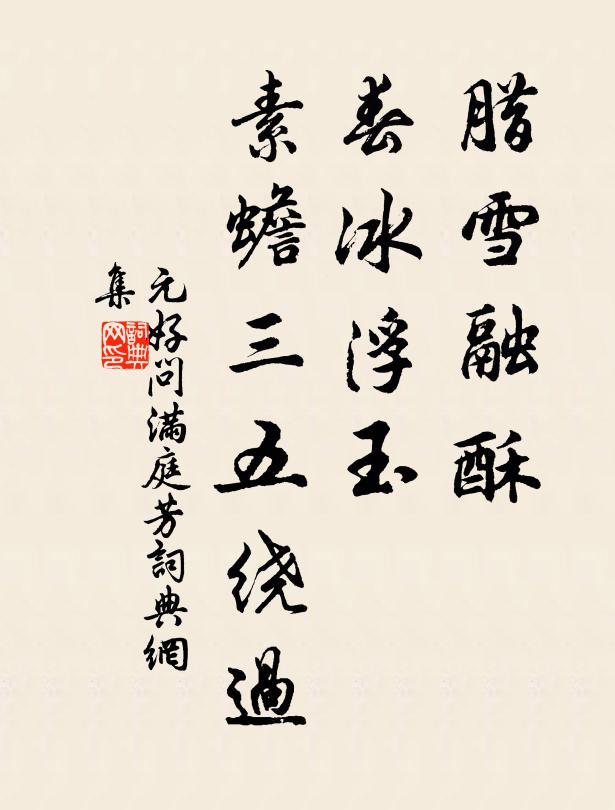 腊雪融酥
春冰浮玉
素蟾三五绕過
元好问满庭芳詞典網
集
詞典网印